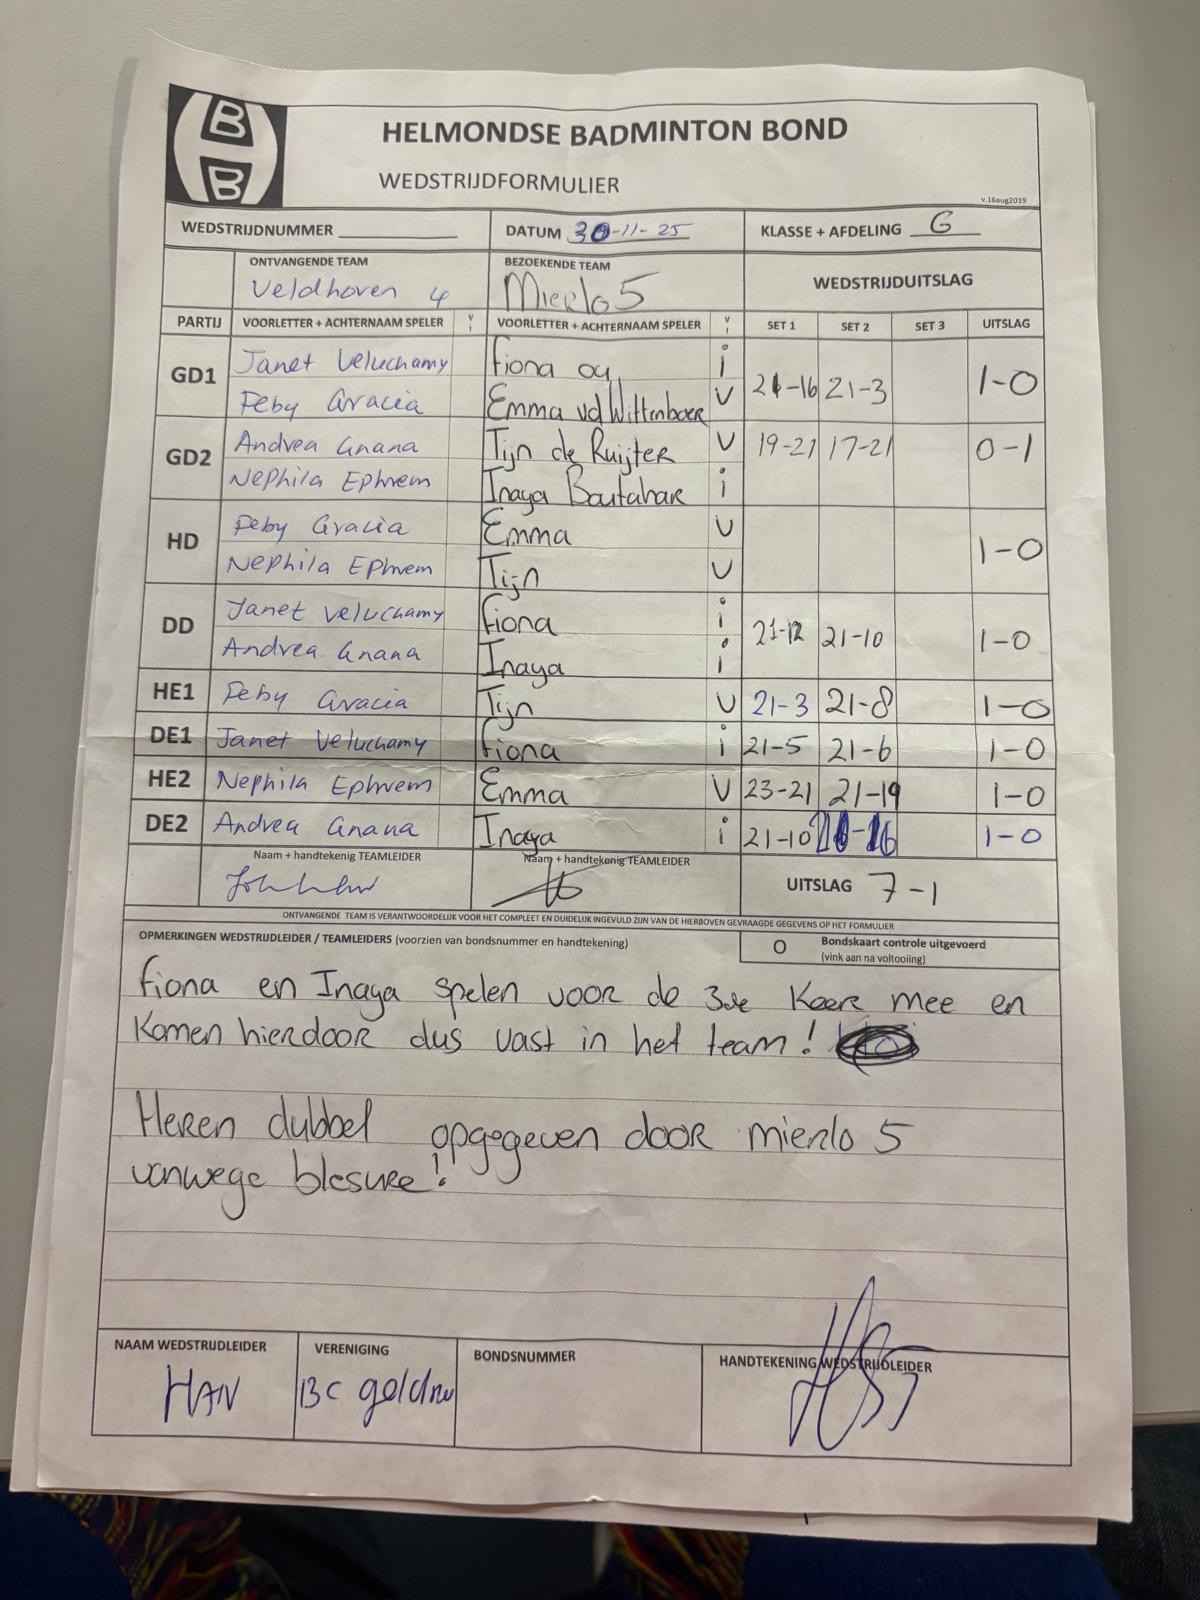 HELMONDSE BADMINTON BOND
WEDSTRIJDFORMULIER
v.16aug2019
WEDSTRIJDNUMMER DATUM 30-11-25 KLASSE + AFDELING G
ONTVANGENDE TEAM BEZOEKENDE TEAM WEDSTRIJDUITSLAG
Veldhoven 4 Mierlo 5
PARTIJ VOORLETTER + ACHTERNAAM SPELER V I VOORLETTER + ACHTERNAAM SPELER V I SET 1 SET 2 SET 3 UITSLAG
GD1 Janet Veluchamy Fiona ou i 21-16 21-3 1-0
Feby Gracia Emma vd Wittenboer V
GD2 Andrea Gnana Tijn de Ruijter V 19-21 17-21 0-1
Nephila Ephrem Inaya Boutahar i
HD Feby Gracia Emma V 1-0
Nephila Ephrem Tijn V
DD Janet Veluchamy Fiona i 21-12 21-10 1-0
Andrea Gnana Inaya i
HE1 Feby Gracia Tijn V 21-3 21-8 1-0
DE1 Janet Veluchamy Fiona i 21-5 21-6 1-0
HE2 Nephila Ephrem Emma V 23-21 21-19 1-0
DE2 Andrea Gnana Inaya i 21-10 1-0
Naam + handtekenig TEAMLEIDER Naam + handtekenig TEAMLEIDER UITSLAG 7-1
ONTVANGENDE TEAM IS VERANTWOORDELIJK VOOR HET COMPLEET EN DUIDELIJK INGEVULD ZIJN VAN DE HIERBOVEN GEVRAAGDE GEGEVENS OP HET FORMULIER
OPMERKINGEN WEDSTRIJDLEIDER / TEAMLEIDERS (voorzien van bondsnummer en handtekening) O Bondskaart controle uitgevoerd
(vink aan na voltooiing)
Fiona en Inaya spelen voor de 3de Keer mee en
Komen hierdoor dus vast in het team!
Heren dubbel opgegeven door mierlo 5
vanwege blesure!
NAAM WEDSTRIJDLEIDER VERENIGING BONDSNUMMER HANDTEKENING WEDSTRIJDLEIDER
HAN BC